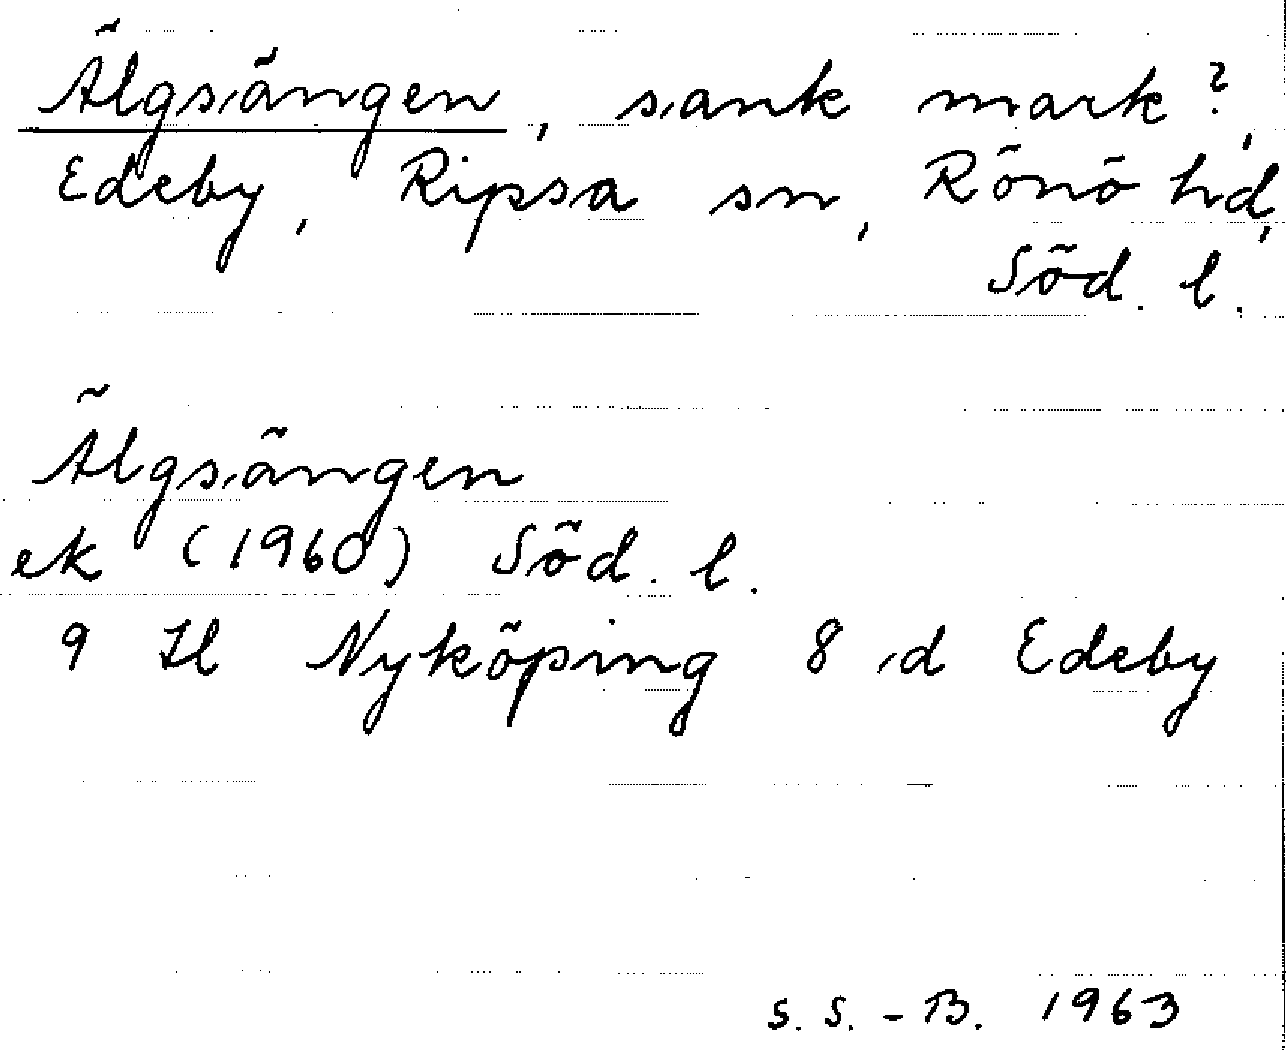 Älgsängen, sank mark?,
Edeby, Ripsa sn, Rönö hd,
Söd. l.
Älgsängen
ek (1960) Söd. l.
9 H Nyköping 8 d Edeby
S. S. - B. 1963